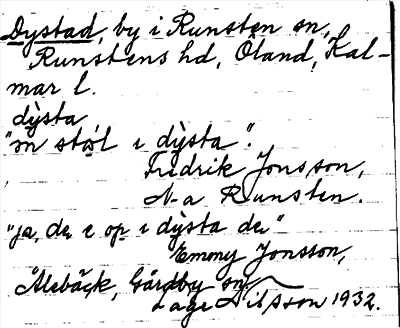 Dystad, by i Runsten sn,
Runstens hd, Öland, Kal-
mar l.
dỳsta
"m stɷ̀l i dỳsta".
Fredrik Jonsson,
N-a Runsten.
"ja, de e op i dỳsta de"
Emmy Jonsson,
Ålebäck, Gårdby sn
Åge Nilsson 1932.